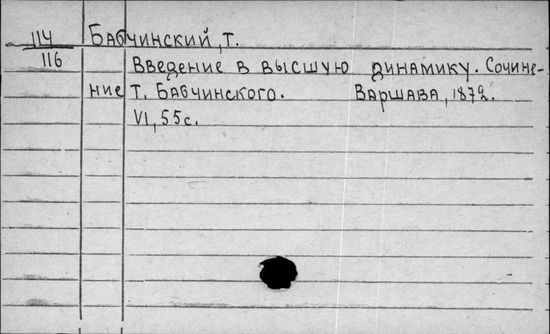 114 Бабчинский, Т.
116 Введение в высшую динамику. Сочине-
ние Т. Бабчинского. Варшава, 1872.
VI, 55 с.